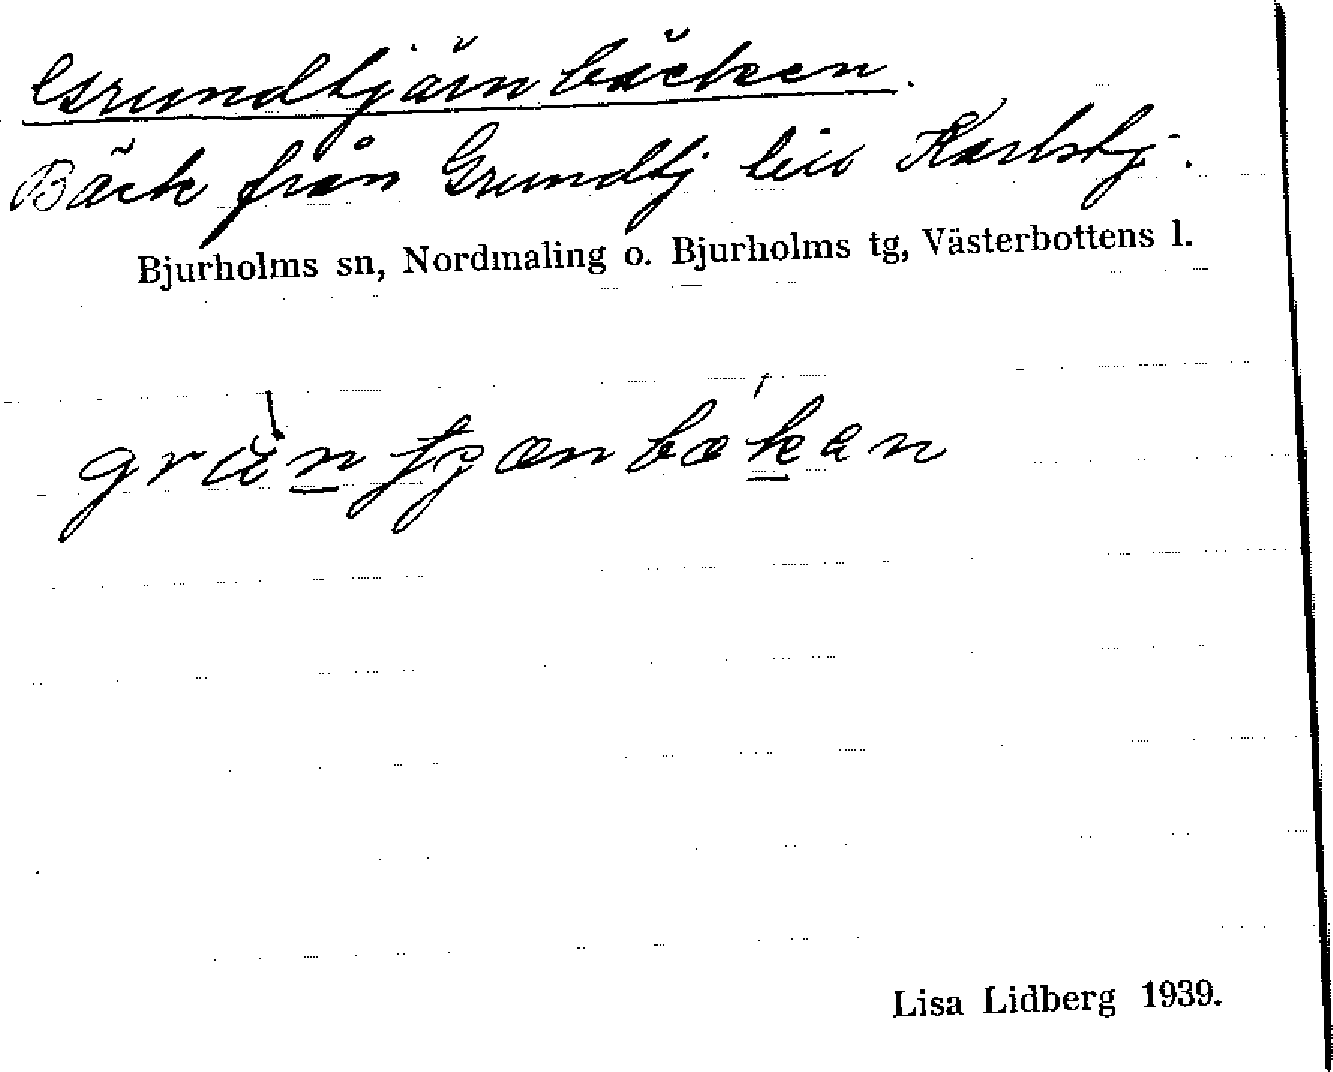 Grundtjärnbäcken.
Bäck från Grundtj till Karlstj.
Bjurholms sn, Nordmaling o. Bjurholms tg, Västerbottens l.
Lisa Lidberg 1939.